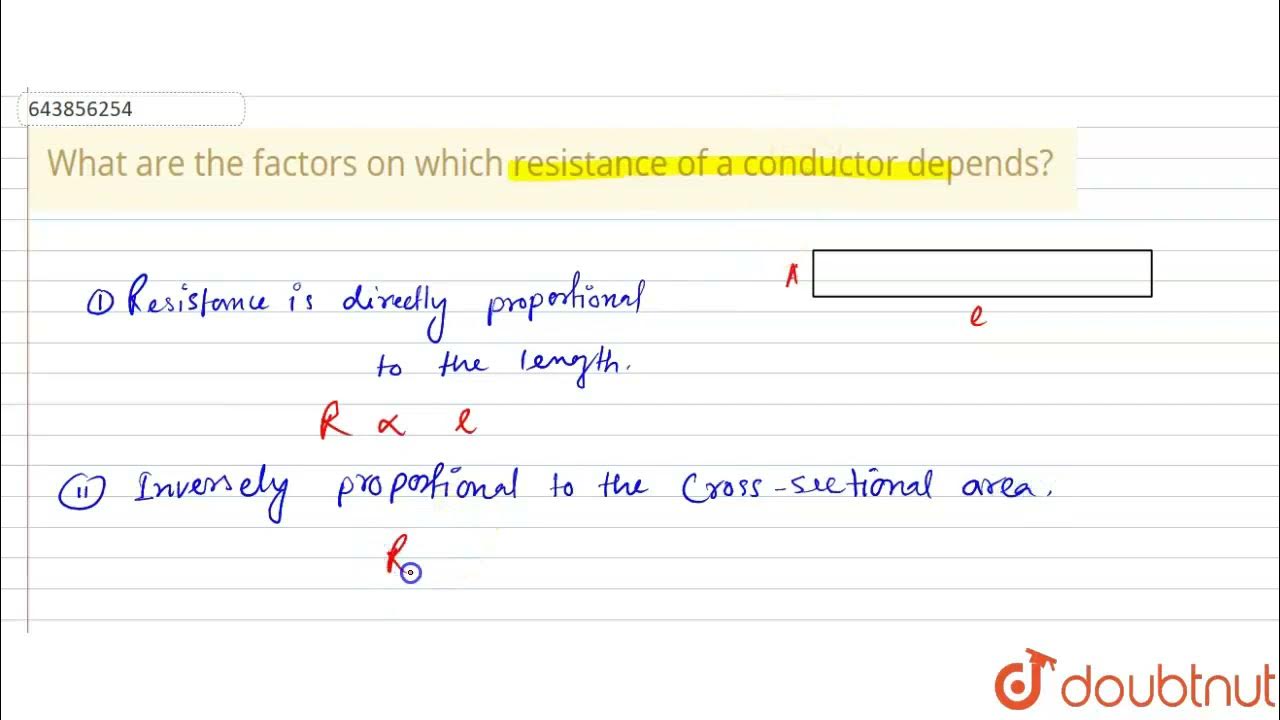 643856254
What are the factors on which resistance of a conductor depends?
① Resistance is directly proportional
to the length.
A
l
R ∝ l
ⓘⓘ Inversely proportional to the cross-sectional area.
R
doubtnut